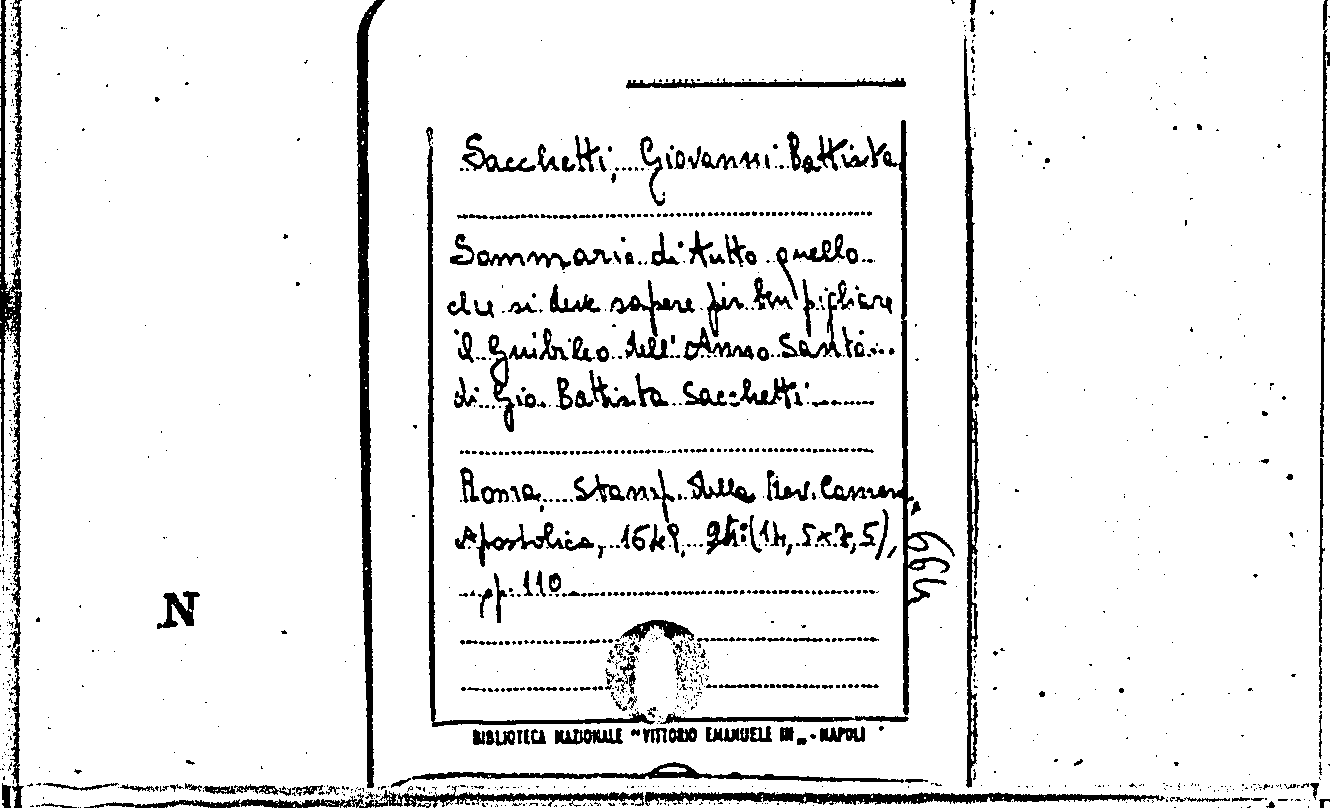 Sacchetti, Giovanni Battista
Sommario di tutto quello
che si deve sapere per ben pigliare
il Giubileo dell' Anno Santo...
di Gio. Battista Sacchetti
Roma, Stamp. della Rev. Camera
Apostolica, 1649, 24:(14,5x7,5),
pp. 110
N
BIBLIOTECA NAZIONALE "VITTORIO EMANUELE III„ - NAPOLI